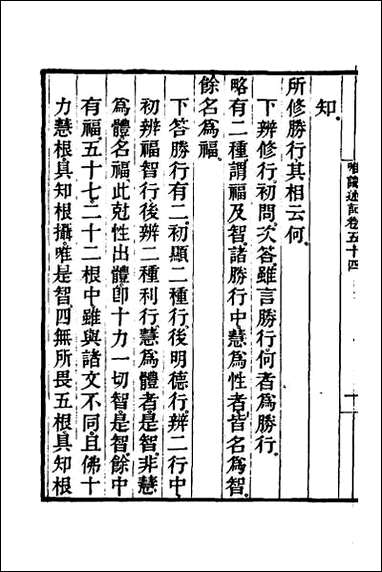 唯識述記卷五十四
十
知。
所修勝行其相云何。
下辨修行。初問。次答。雖言勝行。何者爲勝行。
略有二種。謂福及智。諸勝行中。慧爲性者。皆名爲智。
餘名爲福。
下答勝行有二。初顯二種行。後明德行。辨二行中。
初辨福智行。後辨二種利行。慧爲體者。是智。非慧
爲體名福。此剋性出體。卽十力一切智。是智。餘中
有福。五十七。二十二根中。雖與諸文不同。且佛十
力慧根。具知根攝。唯是智。四無所畏五根。具知根